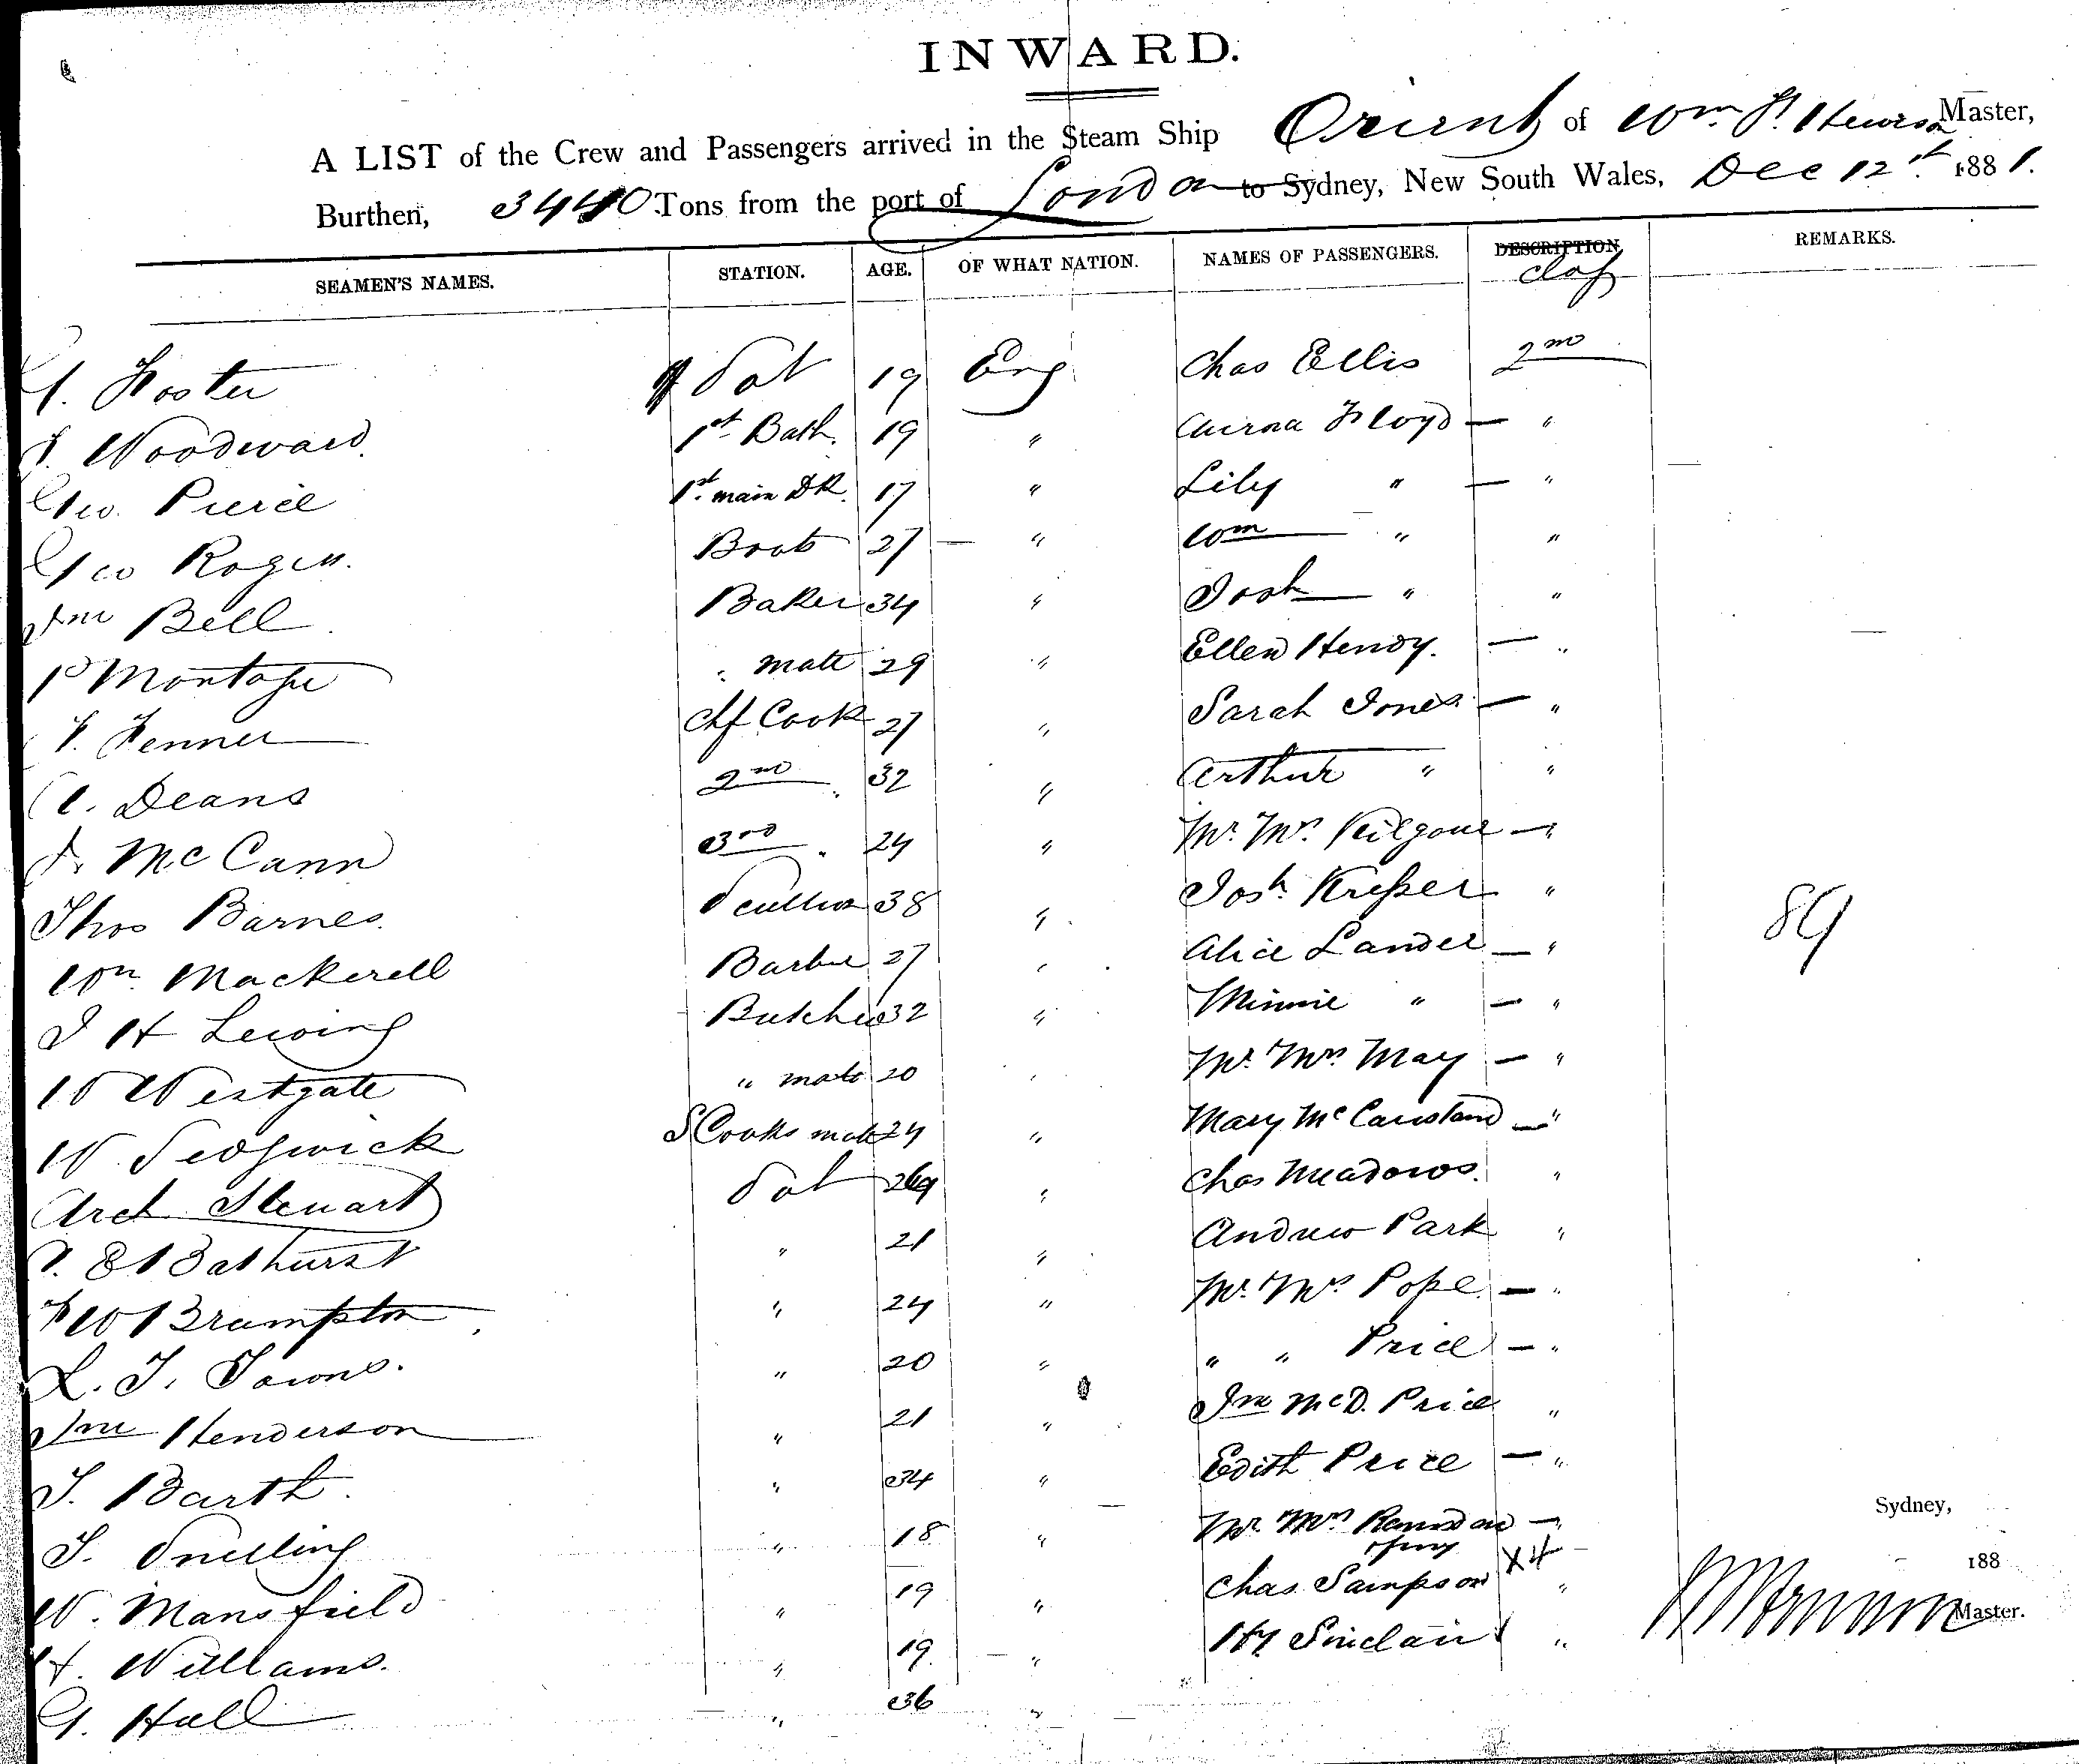 INWARD.
A LIST of the Crew and Passengers arrived in the Steam Ship Orient of Wm. F. Hewison Master,
Burthen, 3440 Tons from the port of London to Sydney, New South Wales, Dec 12st 1881.
SEAMEN'S NAMES. STATION. AGE. OF WHAT NATION. NAMES OF PASSENGERS. DESCRIPTION REMARKS.
Class
G. Foster Sat 19 Eng Chas Ellis 2nd
J. Woodward. 1st Bath. 19 " Floyd — "
Geo. Pierce 1st main DK. 17 " Lily " — "
Geo Rogers. Boots 27 — " Wm " "
Jno Bell Baker 34 " Josh " "
P Montague " mate 29 " Ellen Hendy. — "
F. Fenner Chf Cook 27 " Sarah Jones — "
C. Deans 2nd " 32 " Arthur " "
J. McCann 3rd " 24 " Mr. Mrs. Kilgour — "
Thos Barnes. Scullion 38 " Josh. Kresser "
Wm. Mackerell Barber 27 " Alice Lander — "
89
J H Lewing Butcher 32 " Minnie " — "
W Westgate " mate 20 " Mr. Mrs May — "
W. Sedgwick S Cooks mate 24 " Mary McCausland — "
Arch Stewart Sat 29 " Chas Meadows. "
J. E Bathurst " 21 " Andrew Park "
F W Brampton " 24 " Mr. Mrs Pope — "
L. T. Towns. " 20 " " " Price — "
Jno Henderson " 21 " Jno McD. Price "
T. Barth " 34 " Edith Price — "
Sydney,
T. Snelling " 18 " Mr Mrs —
X4
188
W. Mansfield " 19 " Chas. Sampson "
Master.
H. Williams. " 19 " Hy Sinclair "
G. Hall " 36 "